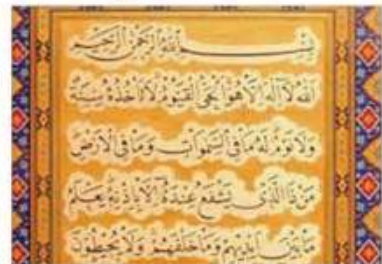 بِسْمِ اللهِ الرَّحْمٰنِ الرَّحِيمِ
اَللهُ لَا اِلٰهَ اِلَّا هُوَ الْحَيُّ الْقَيُّومُ لَا تَأْخُذُهُ سِنَةٌ
وَلَا نَوْمٌ لَهُ مَا فِي السَّمٰوَاتِ وَمَا فِي الْاَرْضِ
مَنْ ذَا الَّذِي يَشْفَعُ عِنْدَهُ اِلَّا بِاِذْنِهِ يَعْلَمُ
مَا بَيْنَ اَيْدِيهِمْ وَمَا خَلْفَهُمْ وَلَا يُحِيطُونَ